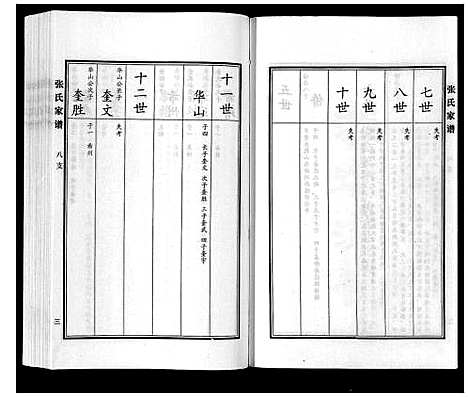 张氏家谱
七世
失考
八世
失考
九世
失考
十世
失考
十一世
华山
子四 长子奎文 次子奎胜 三子奎武 四子奎宇
十二世
华山公长子
奎文
失考
华山公次子
奎胜
子一
张氏家谱
八支
三